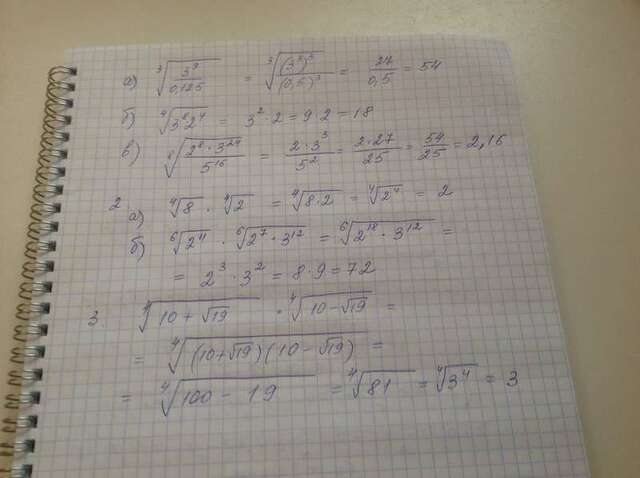 а) ∛(3⁹/0,125) = ∛((3³)³/(0,5)³) = 27/0,5 = 54
б) ⁴√(3⁸2⁴) = 3²·2 = 9·2 = 18
в) ⁸√(2⁸·3²⁴/5¹⁶) = 2·3³/5² = 2·27/25 = 54/25 = 2,16
2. а) ⁴√8 · ⁴√2 = ⁴√(8·2) = ⁴√(2⁴) = 2
б) ⁶√(2¹¹) · ⁶√(2⁷·3¹²) = ⁶√(2¹⁸·3¹²) =
= 2³·3² = 8·9 = 72
3 ⁴√(10+√19) · ⁴√(10-√19) =
= ⁴√((10+√19)(10-√19)) =
= ⁴√(100-19) = ⁴√81 = ⁴√(3⁴) = 3